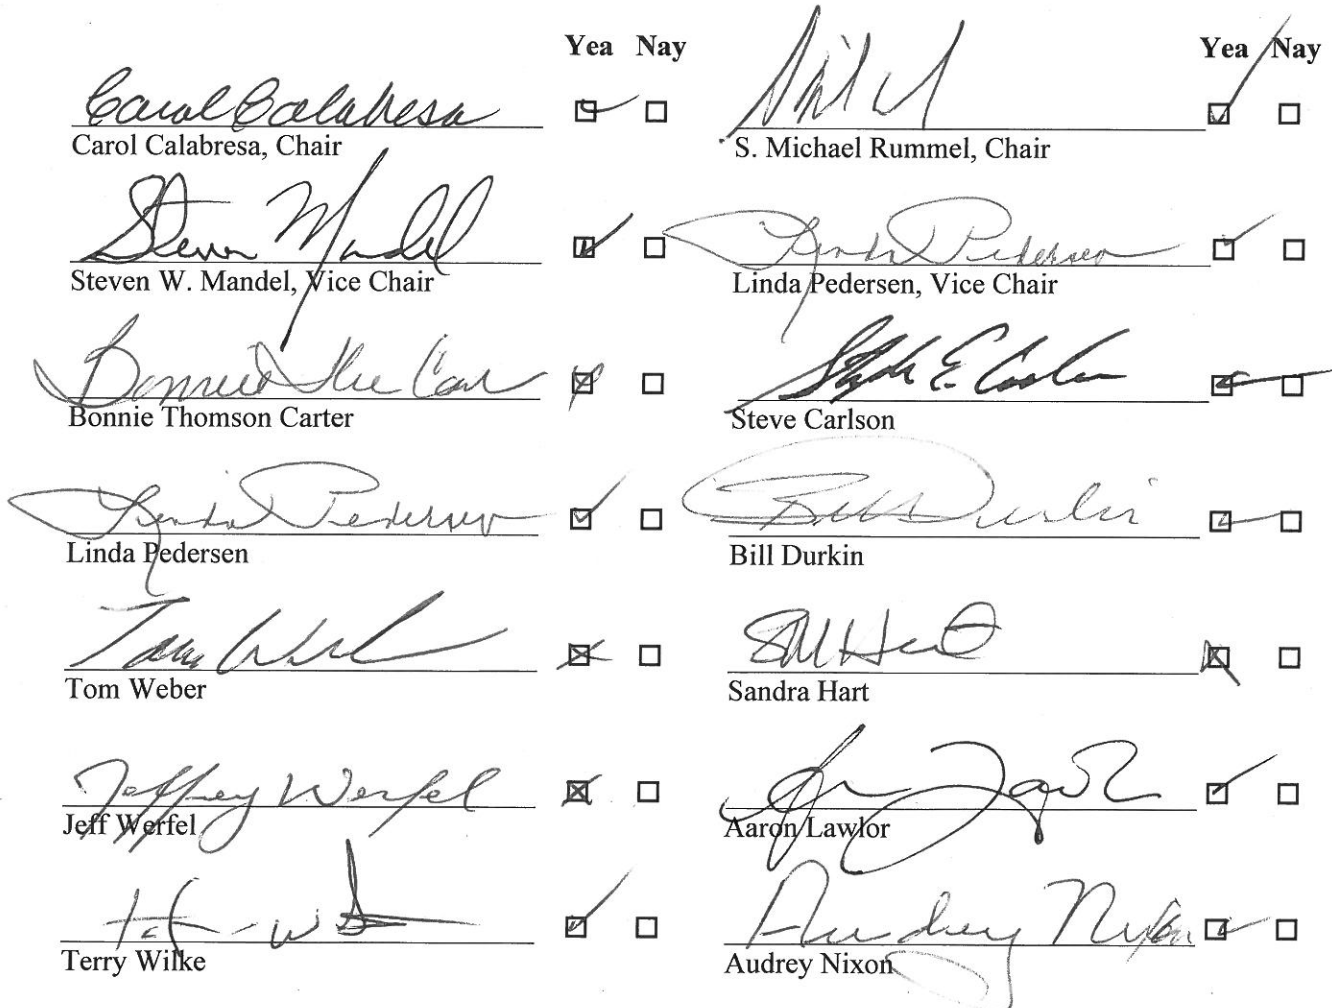 Yea Nay
Carol Calabresa
Carol Calabresa, Chair
Steven Mandel
Steven W. Mandel, Vice Chair
Bonnie
Bonnie Thomson Carter
Linda Pedersen
Linda Pedersen
Tom
Tom Weber
Jeffrey Werfel
Jeff Werfel
Terry Wilke
Yea Nay
S. Michael Rummel, Chair
Linda Pedersen
Linda Pedersen, Vice Chair
E. Carlson
Steve Carlson
Bill Durkin
Bill Durkin
SM Hart
Sandra Hart
Aaron Lawlor
Audrey Nixon
Audrey Nixon